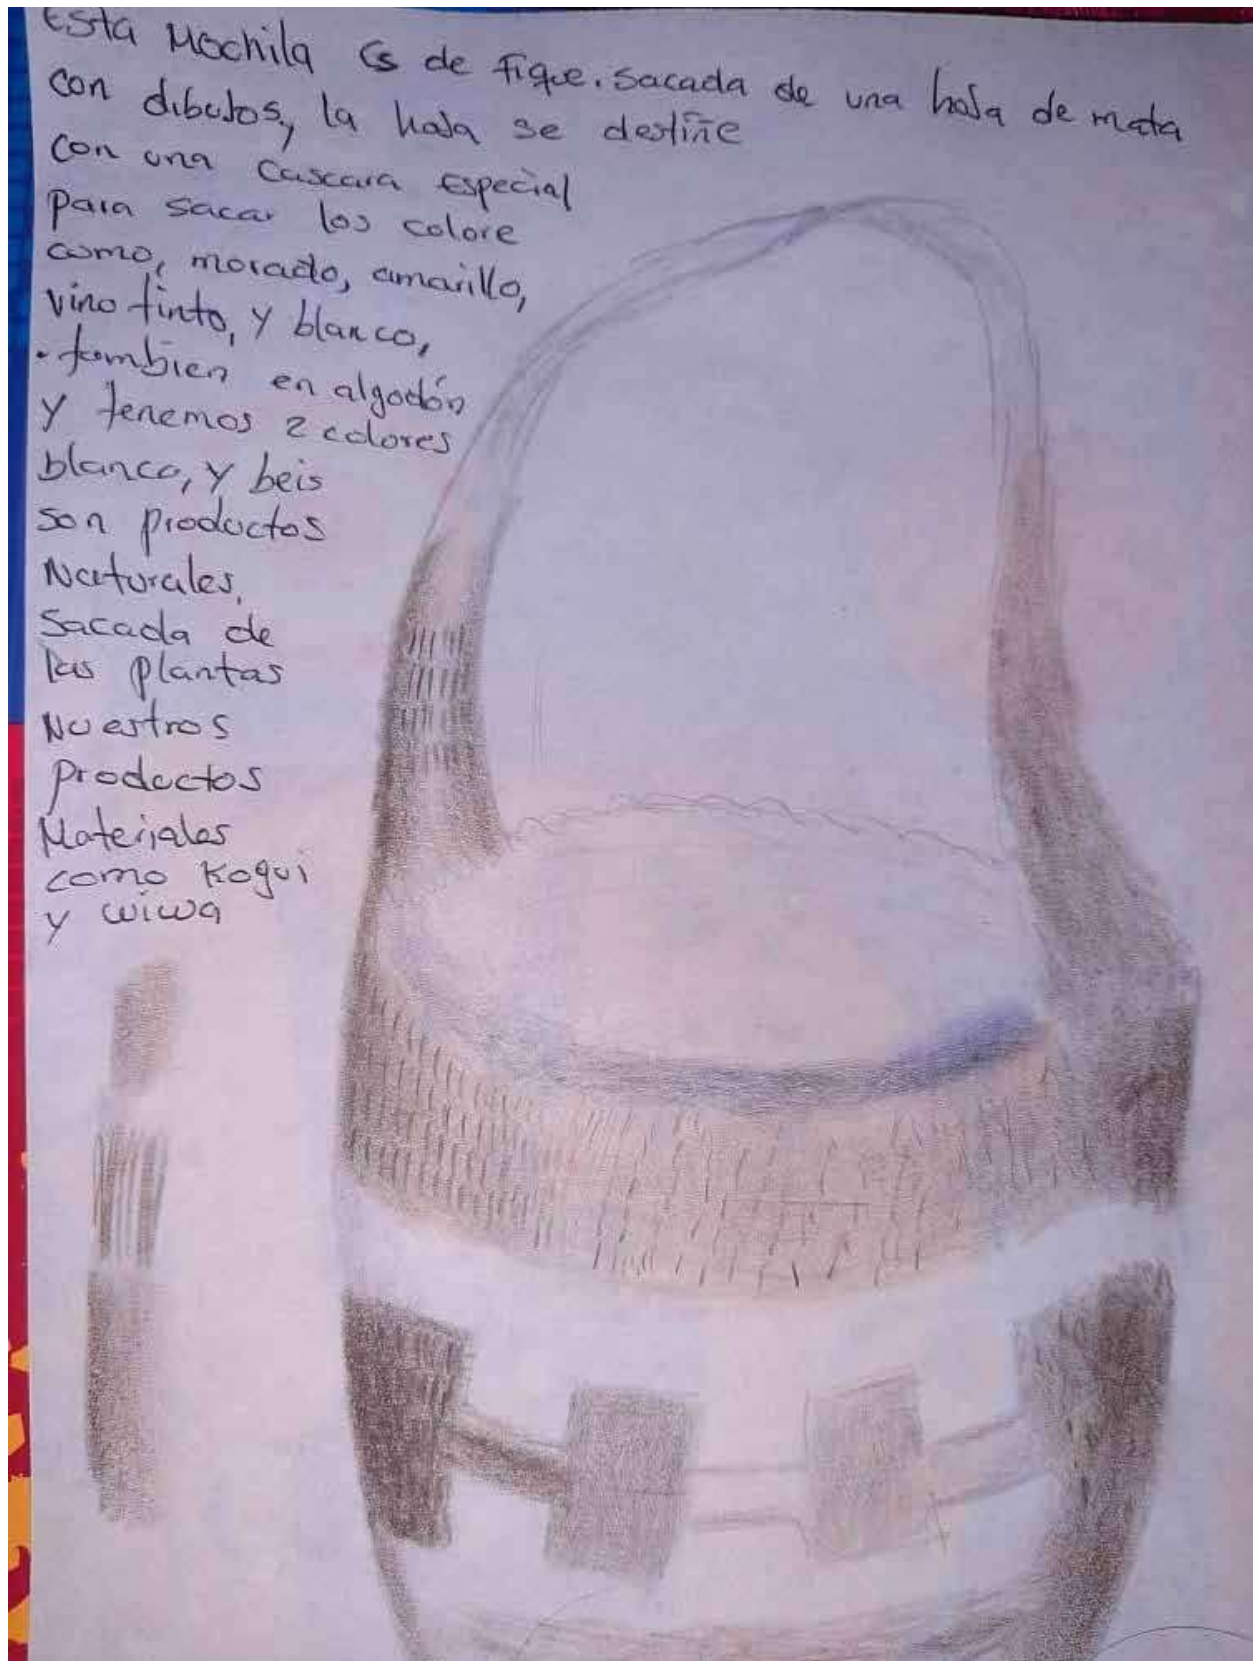 Esta Mochila es de fique. sacada de una hoja de mata
con dibujos, la hoja se destiñe
con una cascara especial
para sacar los colore
como, morado, amarillo,
vino tinto, y blanco,
• tambien en algodón
y tenemos 2 colores
blanco, y beis
son productos
Naturales,
Sacada de
las plantas
Nuestros
productos
Materiales
como Kogui
y wiwa